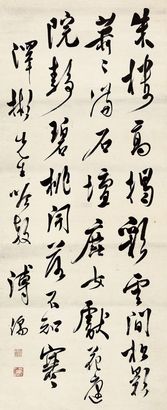 朱樓高揭彩雲間松影
蕭〻滿石壇女獻花
院靜碧桃開落不知寒
澤彬先生吟教 溥儒